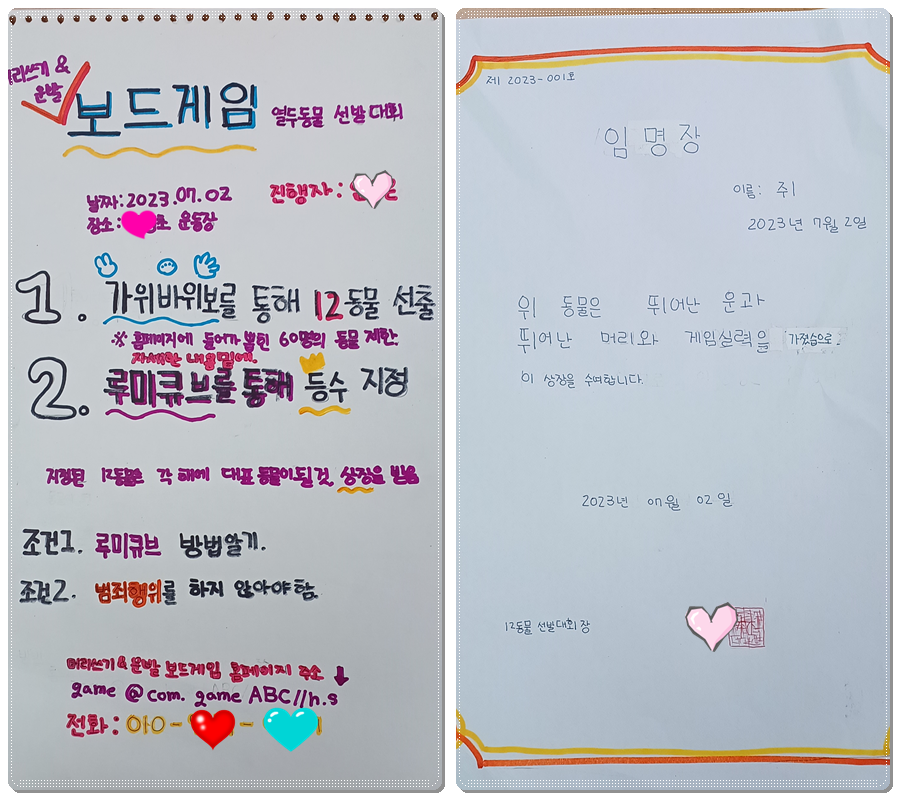 머리쓰기 &
운발
보드게임 열두동물 선발대회
날짜: 2023.07.02
진행자:
장소: 초 운동장
1. 가위바위보를 통해 12동물 선출
※ 홈페이지에 들어가 뽑힌 60명의 동물 제한
자세한 내용 밑에.
2. 루미큐브를 통해 등수 지정
지정된 12동물은 각 해에 대표동물이될것, 상장을 받음
조건1. 루미큐브 방법알기.
조건2. 범죄행위를 하지 않아야함.
머리쓰기 & 운발 보드게임 홈페이지 주소 ↓
game @ com. game ABC//h.s
전화: 010- -
제 2023-001호
임명장
이름: 쥐
2023년 7월 2일
위 동물은 뛰어난 운과
뛰어난 머리와 게임실력을 가졌습으로
이 상장을 수여합니다.
2023년 07월 02일
12동물 선발대회장